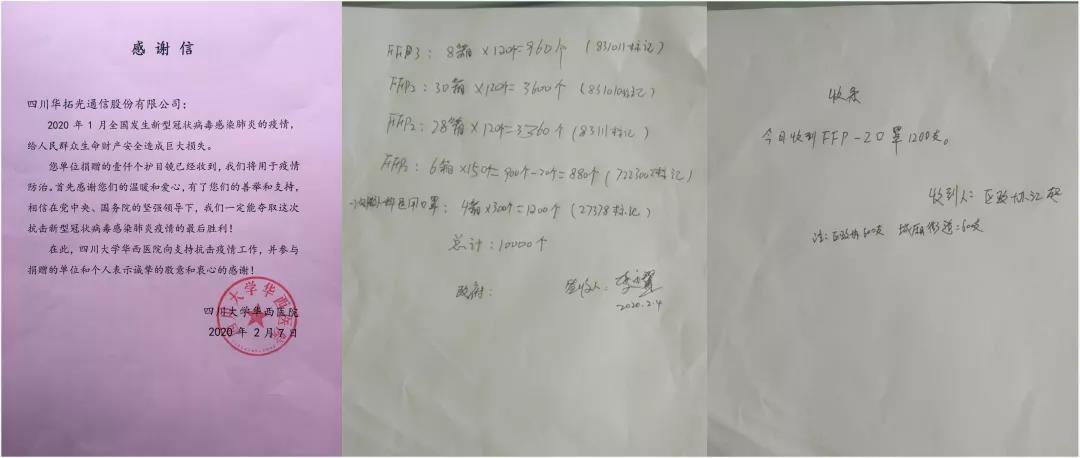 感谢信
四川华拓光通信股份有限公司：
2020年1月全国发生新型冠状病毒感染肺炎的疫情，
给人民群众生命财产安全造成巨大损失。
您单位捐赠的壹仟个护目镜已经收到，我们将用于疫情
防治。首先感谢您们的温暖和爱心，有了您们的善举和支持，
相信在党中央、国务院的坚强领导下，我们一定能夺取这次
抗击新型冠状病毒感染肺炎疫情的最后胜利！
在此，四川大学华西医院向支持抗击疫情工作，并参与
捐赠的单位和个人表示诚挚的敬意和衷心的感谢！
四川大学华西医院
2020年2月7日
四川大学华西医院
FFP3：8箱×120个=960个（831011标记）
FFP2：30箱×120个=3600个（831010标记）
FFP2：28箱×120个=3360个（83111标记）
FFP2：6箱×150个=900个-20个=880个（7223002标记）
医用口罩：4箱×300个=1200个（27378标记）
总计：10000个
政府：
签收人：
2020.2.4
收条
今日收到FFP-2口罩1200支。
收到人：区政协
注：区政协600支 街道：600支